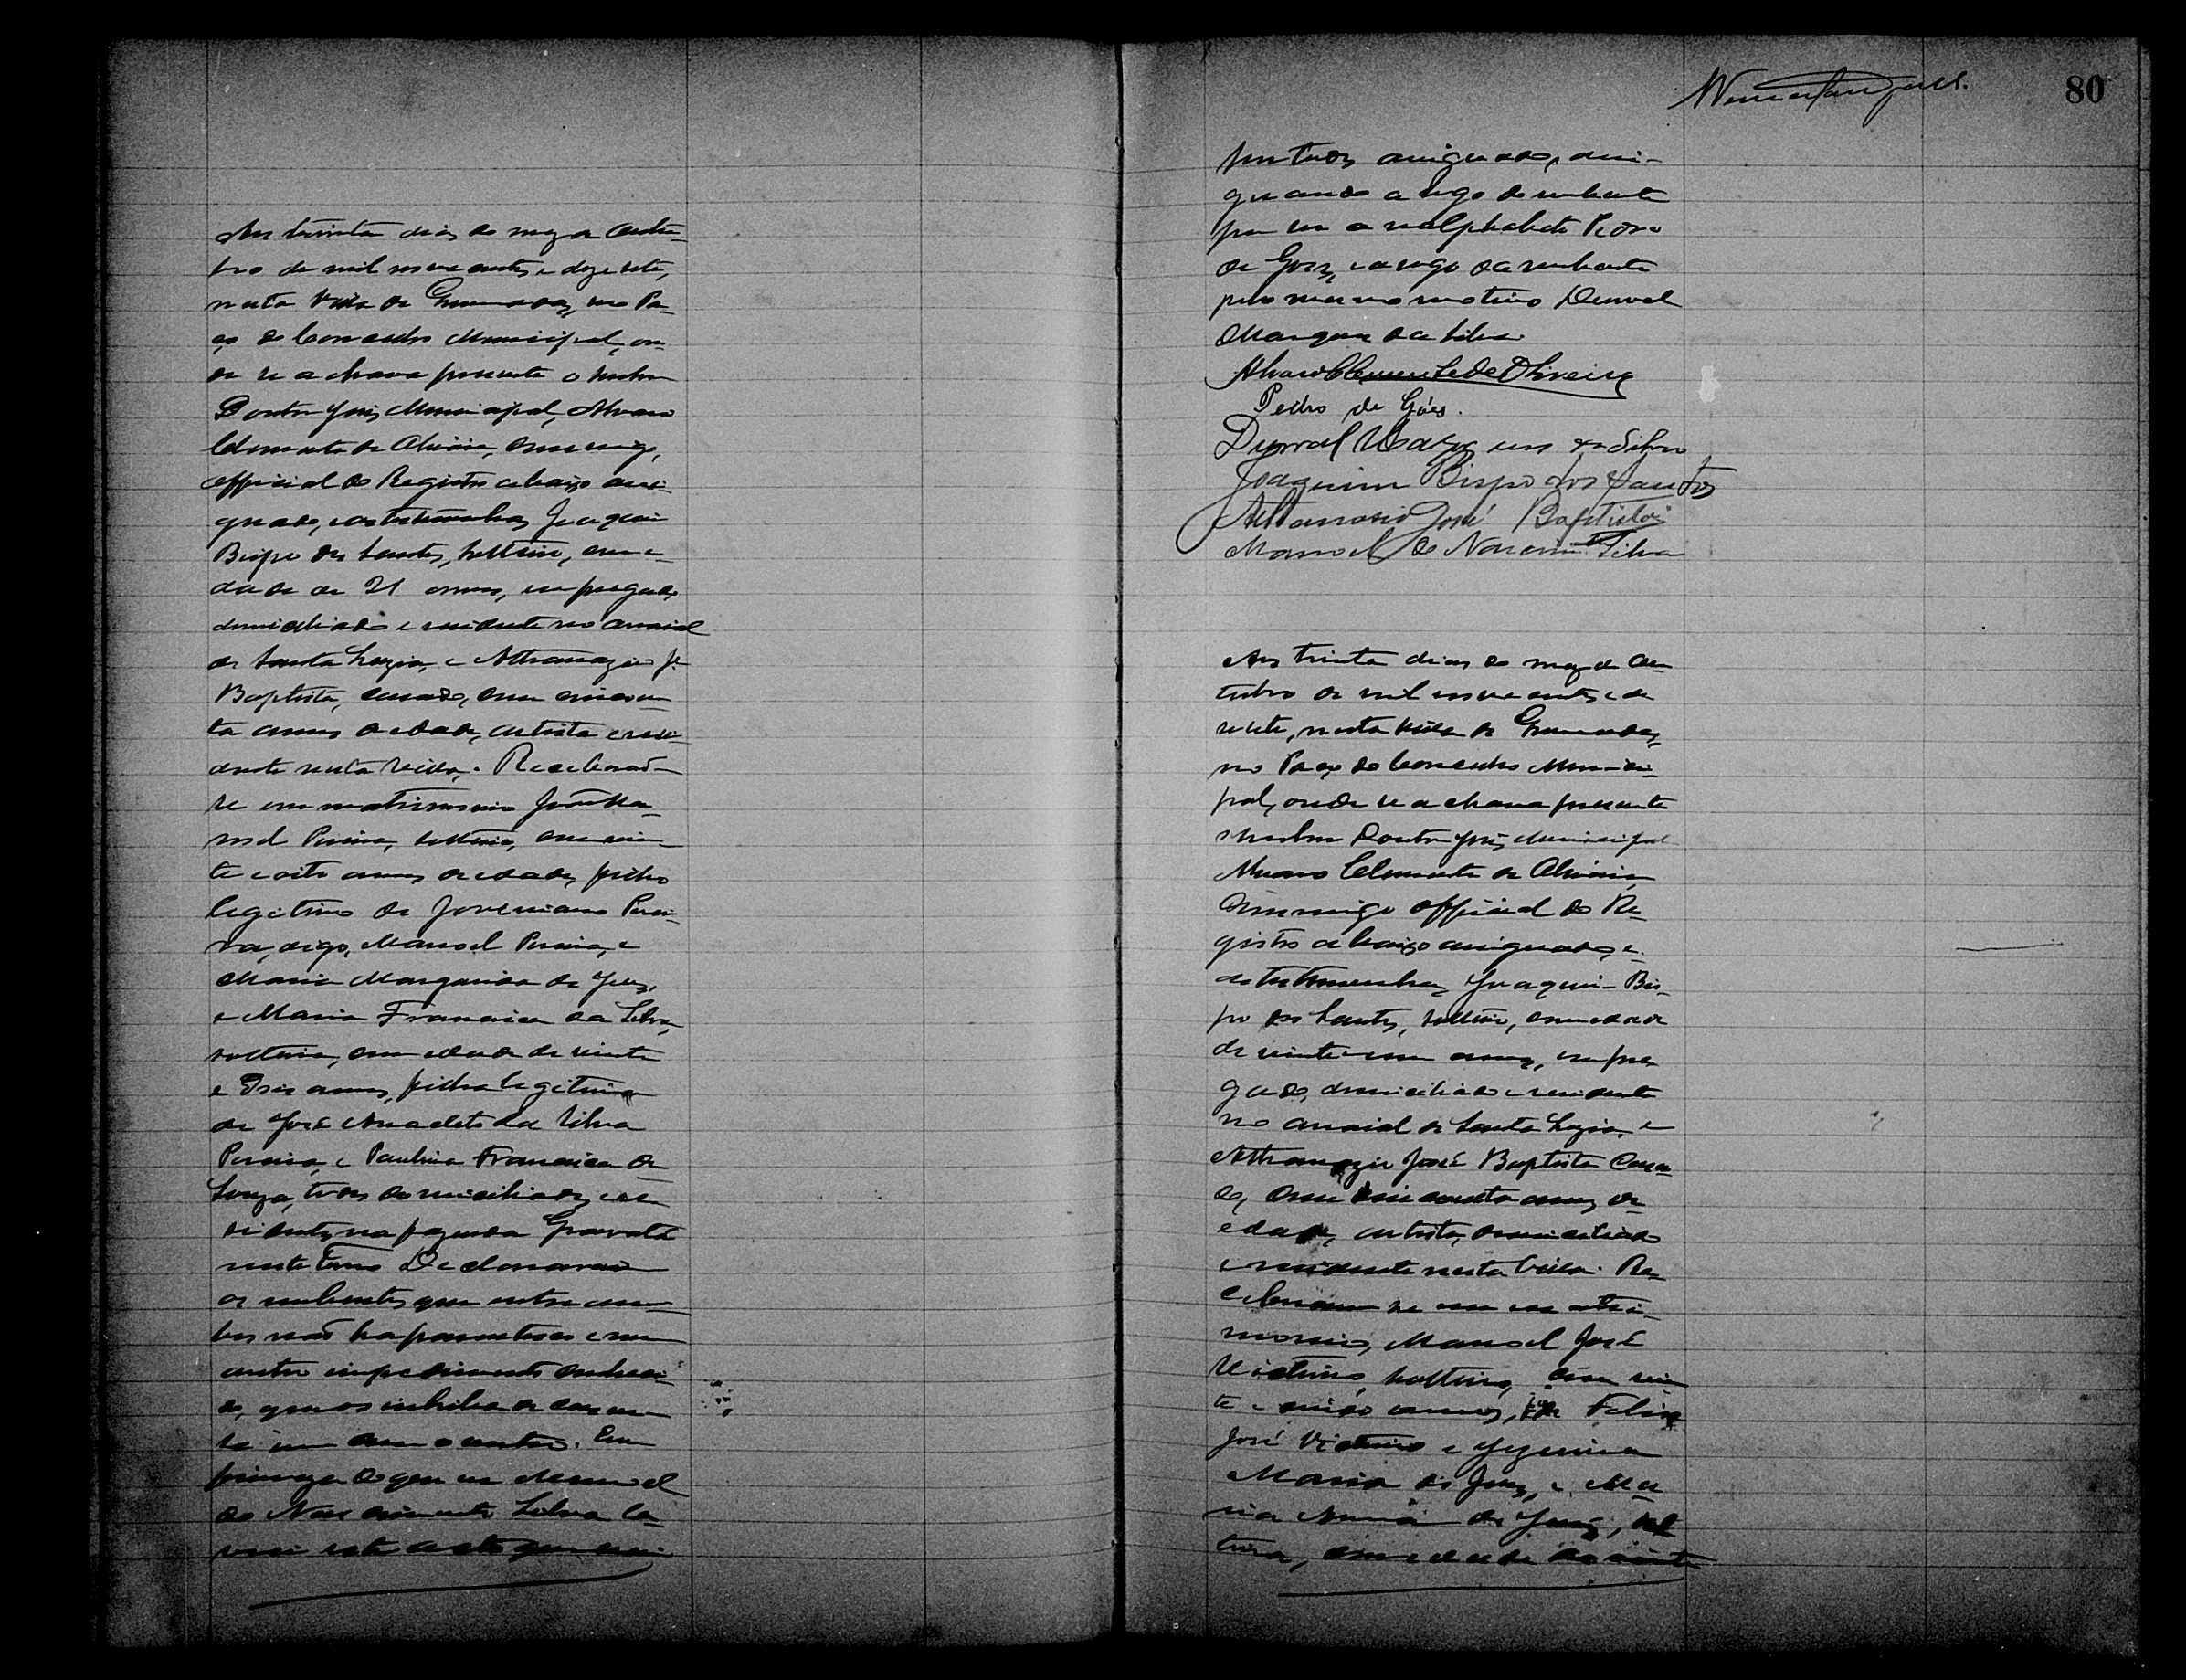 Aos trinta dias do mez de Outu-
bro de mil nove centos e dezesete,
nesta Villa de Gruminadas, no Pa-
ço do Conselho Municipal, on-
de se achava presente o senhor
Doutor Juiz Municipal, Alvaro
Clemente de Oliveira, commigo,
official do Registro abaixo assi-
gnado, e as testemunhas Joaquim
Bispo dos Santos, solteiro, com e-
dade de 21 annos, empregado,
domiciliado e residente no arraial
de Santa Luzia, e Athanazio Jé
Baptista, casado, com cincoen-
ta annos de edade, artista e resi-
dente nesta Villa. Receberaõ-
se em matrimonio João Ma-
noel Pereira, solteiro, com vin-
te e oito annos de edade, filho
legitimo de Joveniano Perei-
ra, digo, Manoel Pereira, e
Maria Margarida de Jesus,
e Maria Francisca da Silva,
solteira, com edade de vinte
e tres annos, filha legitima
de José Anacleto da Silva
Pereira, e Paulina Francisca de
Souza, todos domiciliados e re-
sidentes na fazenda Gravatá
neste Termo. Declararaõ
os nubentes que entre am-
bos naõ ha parentesco e nem
outro impedimento conheci-
do, que os inhiba de casar-
se um com o outro. Em
firmeza do que eu Manoel
do Nascimento Silva la-
vrei este acto que vai
80
por todos assignado, assi-
gnando a rogo do nubente
por ser analphabeto Pedro
de Goes, e a rogo da nubente
pelo mesmo motivo Durval
Marques da Silva.
Alvaro Clemente de Oliveira
Pedro de Góes.
Durval Marques da Silva
Joaquim Bispo dos Santos
Athanasio José Baptista
Manoel do Nascimto Silva
Aos trinta dias do mez de Ou-
tubro de mil nove centos e de-
sesete, nesta Villa de
no Paço do Conselho Munici-
pal, onde se achava presente
o senhor Doutor Juiz Municipal
Alvaro Clemente de Oliveira,
commigo official do Re-
gistro abaixo assignado, e
as testemunhas Joaquim Bis-
po dos Santos, solteiro, com edade
de vinte e um annos, empre-
gado, domiciliado e residente
no arraial de Santa Luzia, e
Athanazio José Baptista casa-
do, com cincoenta annos de
edade, artista, domiciliado
e residente nesta Villa. Re-
ceberam se em matri-
monio, Manoel José
Victorino, solteiro, com vin-
te e cinco annos, Felix
José Victorino e
Maria de Jesus, e Ma-
ria de Jesus, sol-
teira, com edade de vinte